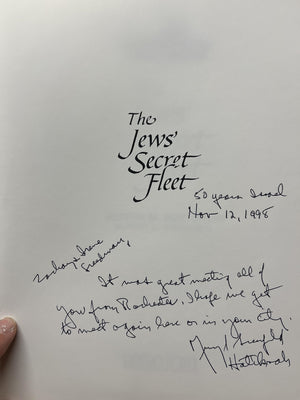 The
Jews'
Secret
Fleet
50 years Israel
Nov 12, 1998
Irene
It was great meeting all of
you from Rochester. I hope we get
to meet again here or in your city.
Murray Greenfield
Hatikvah